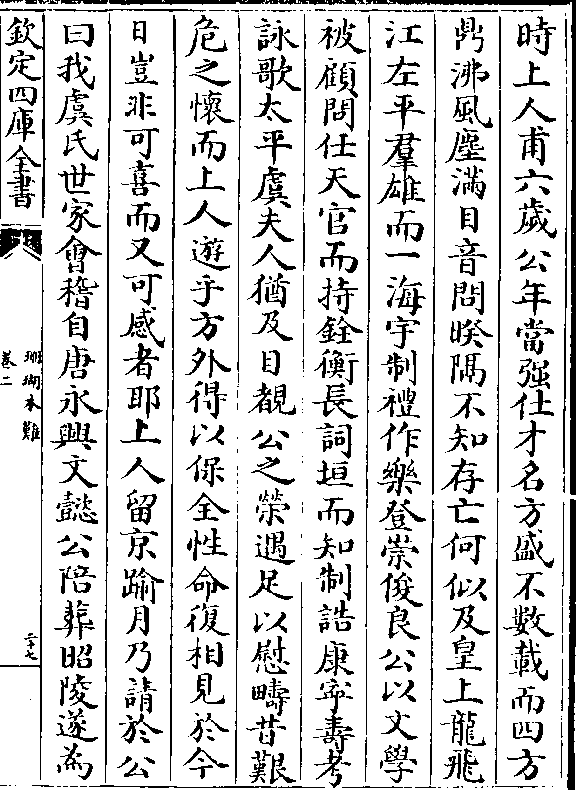 時上人甫六歲公年當强仕才名方盛不數載而四方
鼎沸風塵滿目音問暌隔不知存亡何似及皇上龍飛
江左平羣雄而一海宇制禮作樂登崇俊良公以文學
被顧問仕天官而持銓衡長詞垣而知制誥康寧壽考
詠歌太平虞夫人猶及目覩公之榮遇足以慰疇昔艱
危之懷而上人遊乎方外得以保全性命復相見於今
日豈非可喜而又可感者耶上人留京踰月乃請於公
曰我虞氏世家會稽自唐永興文懿公陪葬昭陵遂為
欽定四庫全書
珊瑚木難
卷二
二十七